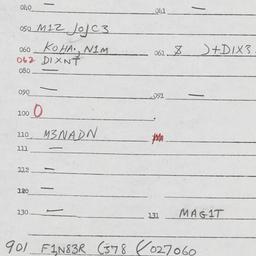 040 — 041 —
050 M1Z JOJC3
060 KOHA., N1M 061 8 )+DIX3
062 DIXNT
080 —
090 — 091 —
100 0
110 M3NADN
111 —
118 —
120 —
130 — 131 MAG1T
901 F1N83R (J78 (/027060